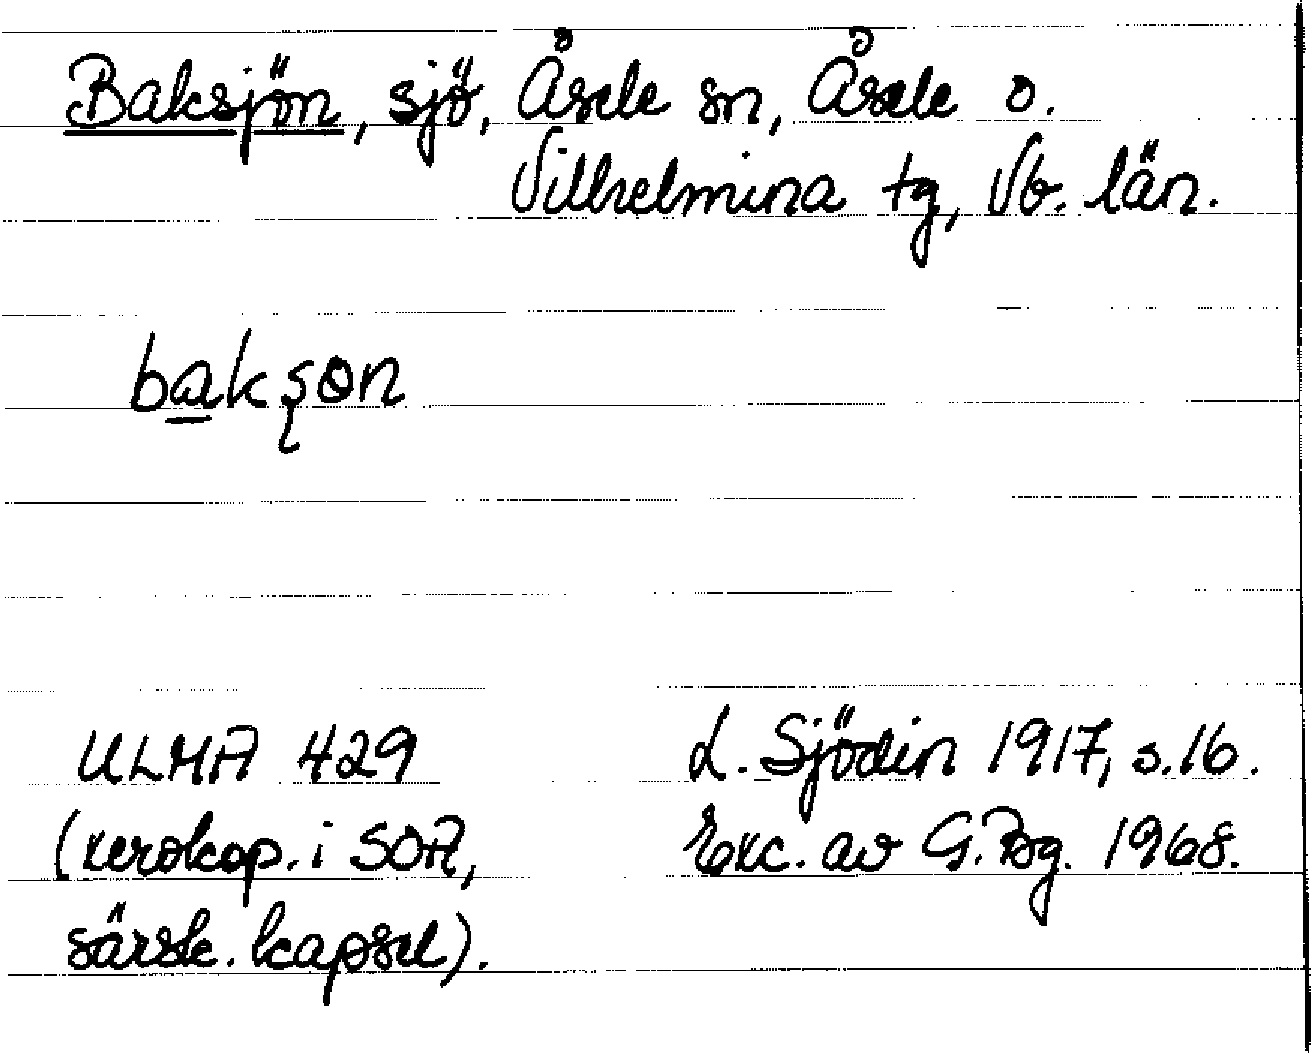 Baksjön, sjö, Åsele sn, Åsele o.
Vilhelmina tg, Vb. län.
bakşɵn
ULMA 429
(xerokop. i SOA,
särsk. kapsel).
L. Sjödin 1917, s.16.
Exc. av G. Bg. 1968.